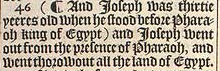 46 (¶ And Joseph was thirtie
yeeres old when he stood before Phara-
oh king of Egypt) and Joseph went
out from the presence of Pharaoh, and
went thorowout all the land of Egypt.